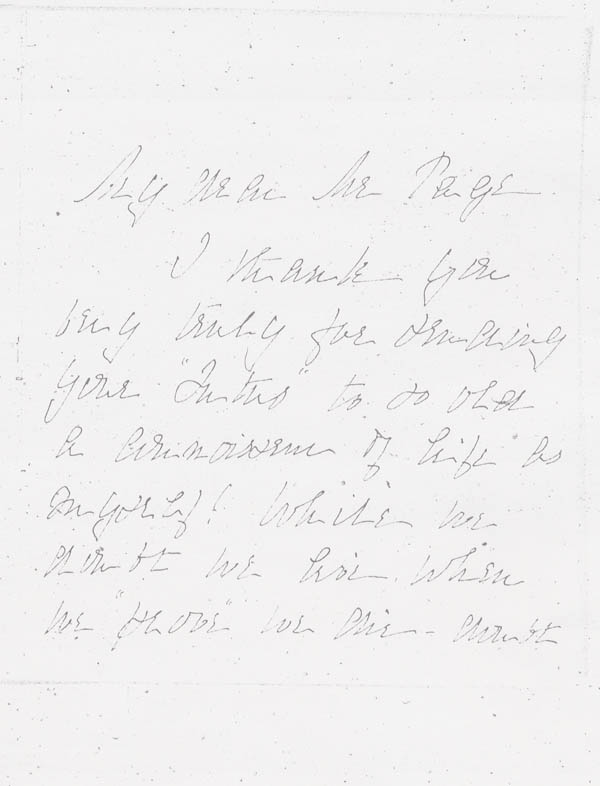 My dear Mr Paige
I thank you
very truly for sending
your "Intro" to so old
a connoisseur of life as
myself! While we
doubt we live when
we "prove" we die - doubt